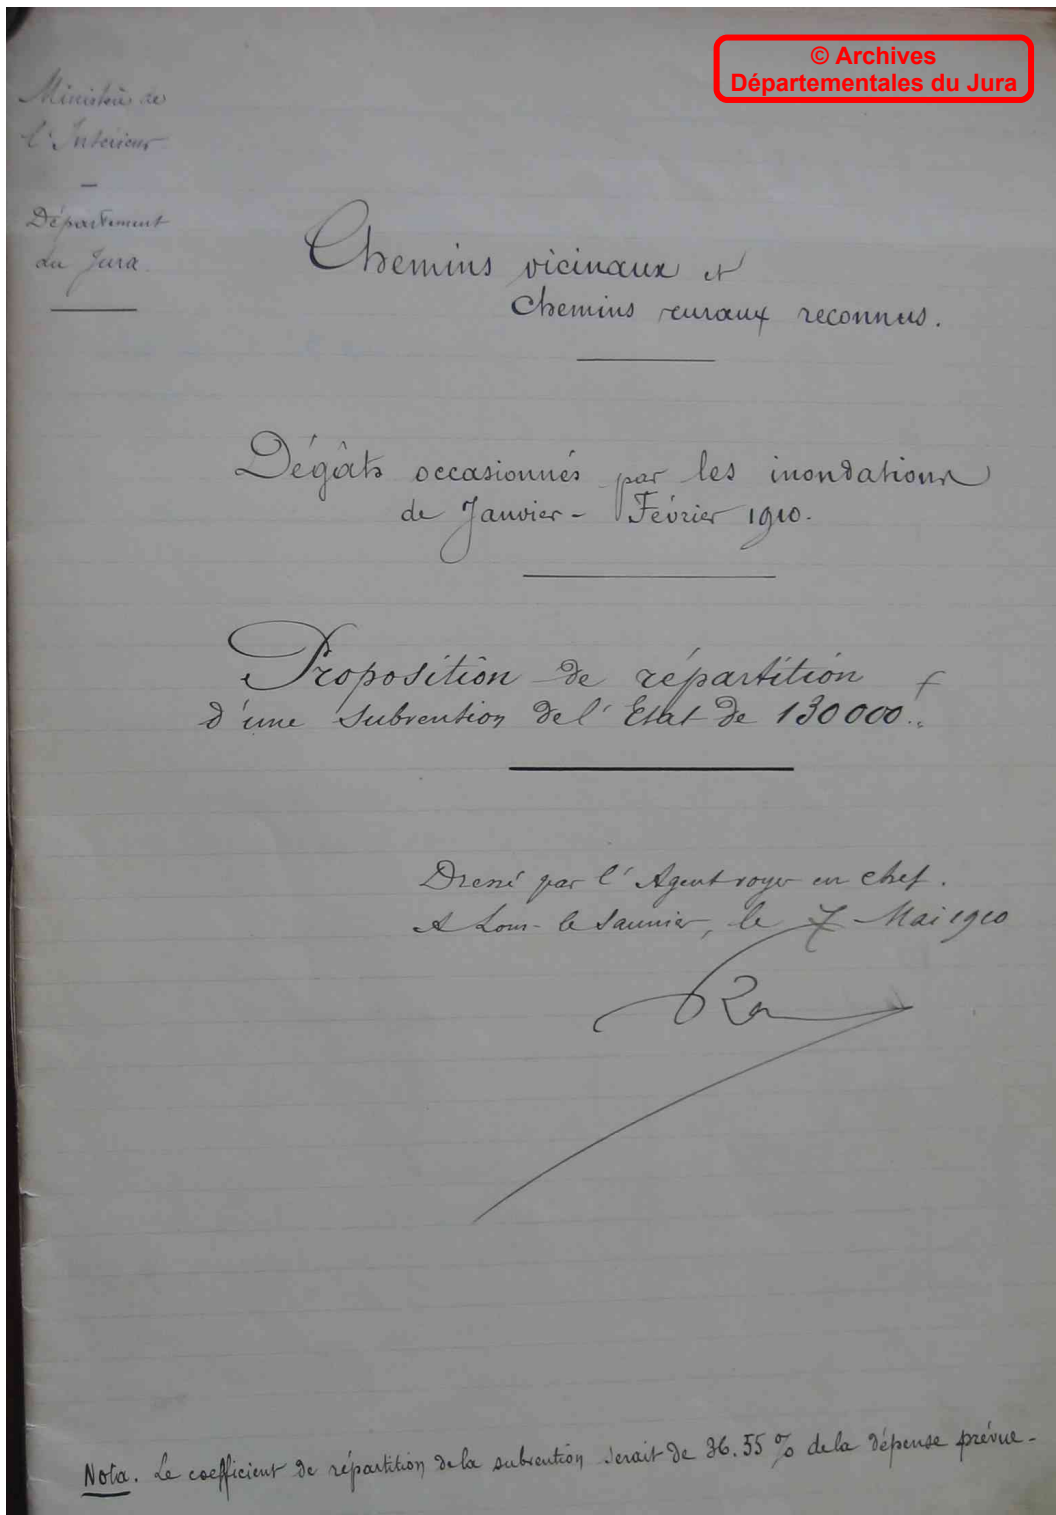 © Archives
Départementales du Jura
Ministère de
l'Intérieur
Département
du Jura.
Chemins vicinaux et
Chemins ruraux reconnus.
Dégâts occasionnés par les inondations
de Janvier - Février 1910.
Proposition de répartition
d'une subvention de l'Etat de 130000 f
Dressé par l'Agent voyer en chef.
A Lons-le-Saunier, le 7 Mai 1910
Nota. Le coefficient de répartition de la subvention serait de 36.55 % de la dépense prévue -